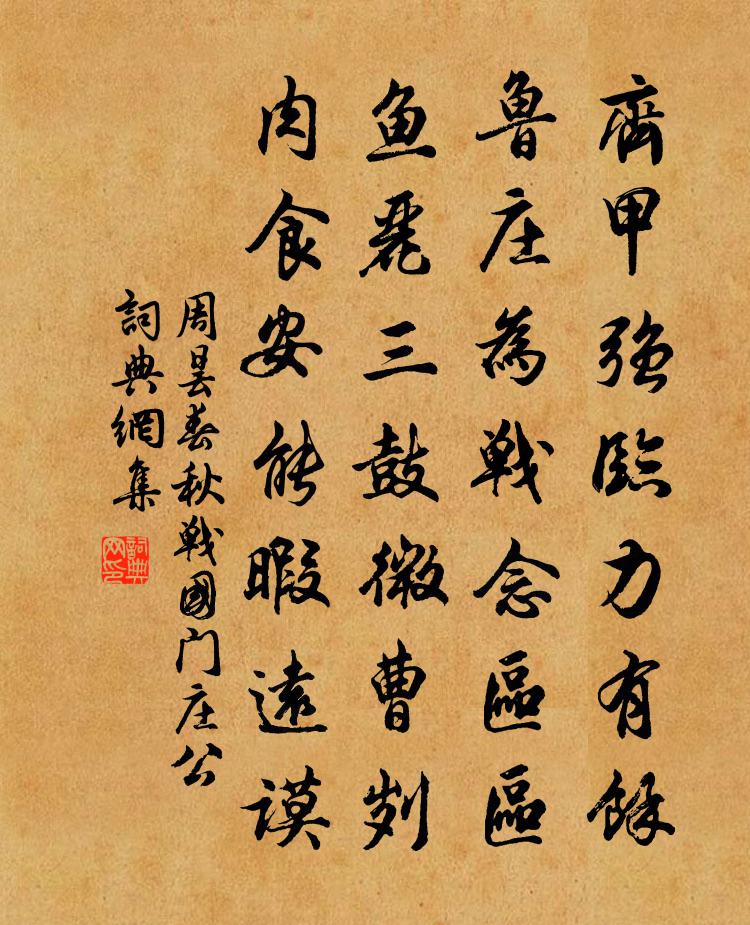 齊甲強臨力有餘
魯庄為戰念區區
鱼麗三鼓微曹刿
肉食安能暇遠謨
周昙春秋戰國门庄公
詞典網集
詞典
网印